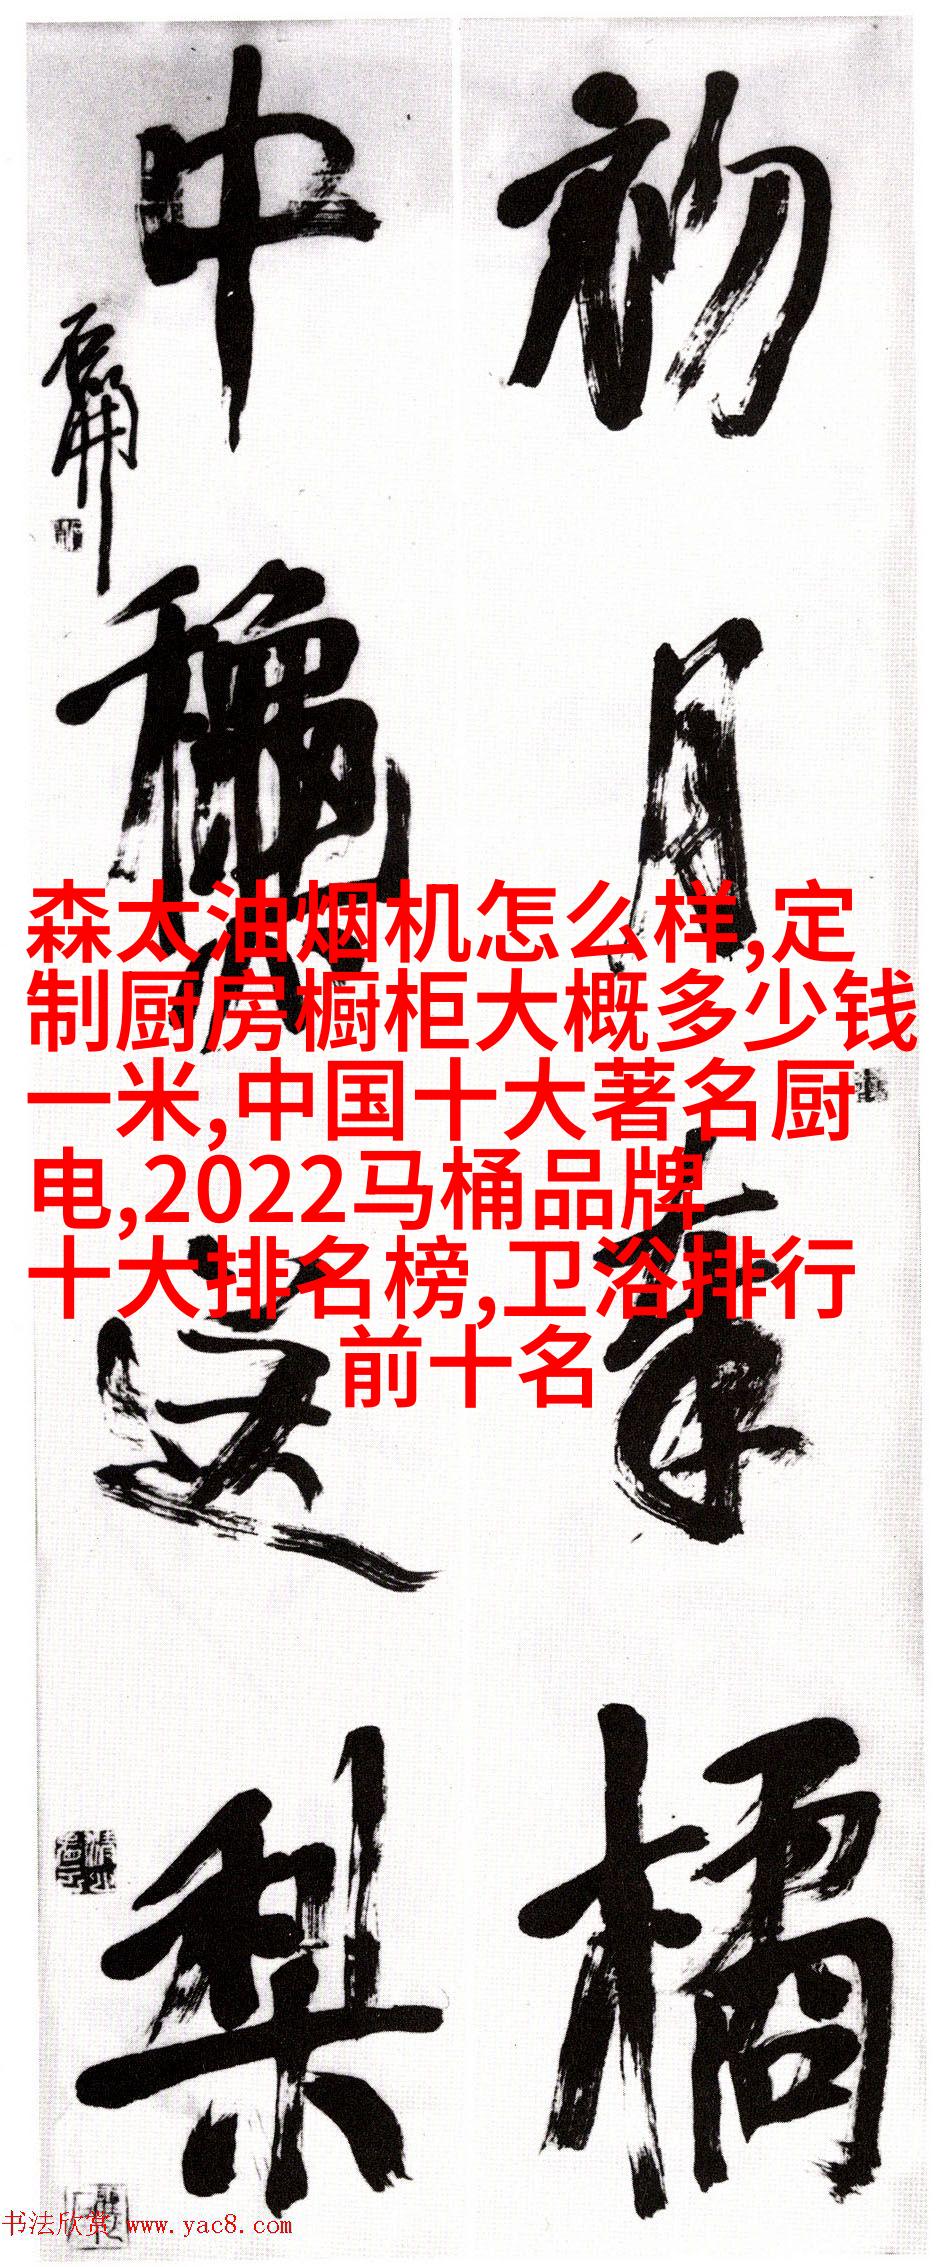 初月
橘
中
梨
森太油烟机怎么样,定
制厨房橱柜大概多少钱
一米,中国十大著名厨
电,2022马桶品牌
十大排名榜,卫浴排行
前十名
书法欣赏 www.yac8.com